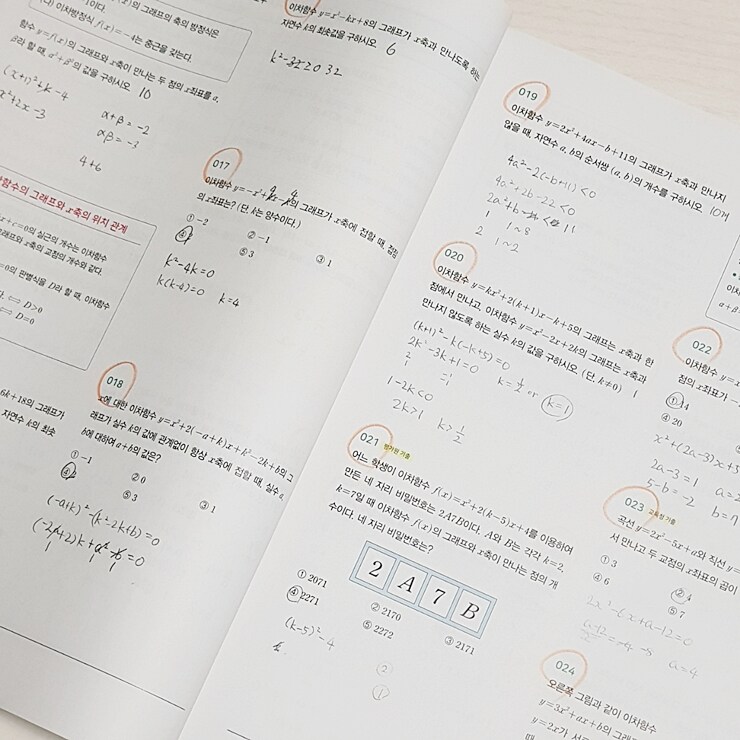 (나) 이차방정식 f(x)=-4는 중근을 갖는다.
함수 y=f(x)의 그래프와 x축이 만나는 두 점의 x좌표를 α,
β라 할 때, α²+β²의 값을 구하시오. 10
(x+1)²+k-4
x²+2x-3
α+β=-2
αβ=-3
4+6
함수의 그래프와 x축의 위치 관계
이차함수 y=x²-kx+8의 그래프가 x축과 만나도록 하는
자연수 k의 최솟값을 구하시오. 6
k²-32≥0 32
017
의 x좌표는? (단, k는 양수이다.)
① -2
② -1
③ 1
④
⑤ 3
k²-4k=0
k(k-4)=0 k=4
6k+18의 그래프가
자연수 k의 최솟
018
x에 대한 이차함수 y=x²+2(-a+k)x+k²-2k+b의 그
래프가 실수 k의 값에 관계없이 항상 x축에 접할 때, 실수 a,
b에 대하여 a+b의 값은?
① -1
② 0
③ 1
④
⑤ 3
(-a+k)²-(k²-2k+b)=0
(-2a+2)k+a²-b=0
019
이차함수 y=2x²+4ax-b+11의 그래프가 x축과 만나지
않을 때, 자연수 a, b의 순서쌍 (a, b)의 개수를 구하시오. 10개
4a²-2(-b+11)<0
4a²+2b-22<0
1 1~8
2 1~2
020
이차함수 y=kx²+2(k+1)x-k+5의 그래프는 x축과 한
점에서 만나고, 이차함수 y=x²-2x+2k의 그래프는 x축과
만나지 않도록 하는 실수 k의 값을 구하시오. (단, k≠0) 1
(k+1)²-k(-k+5)=0
2k²-3k+1=0
k=1/2 or k=1
1-2k<0
2k>1 k>1/2
021 평가원 기출
어느 학생이 이차함수 f(x)=x²+2(k-5)x+4를 이용하여
만든 네 자리 비밀번호는 2A7B이다. A와 B는 각각 k=2,
k=7일 때 이차함수 f(x)의 그래프와 x축이 만나는 점의 개
수이다. 네 자리 비밀번호는?
2 A 7 B
① 2071
② 2170
③ 2171
④ 2271
⑤ 2272
(k-5)²-4
②
①
022
이차함수
점의 x좌표가
① 14
④ 20
x²+(2a-3)x+5
2a-3=1
5-b=-2
023 교육청 기출
곡선 y=2x²-5x+a와 직선 y=
서 만나고 두 교점의 x좌표의 곱이
① 3
② 4
④ 6
⑤ 7
2x²-6x+a-12=0
a=4
024
오른쪽 그림과 같이 이차함수
y=3x²+ax+b의 그래프